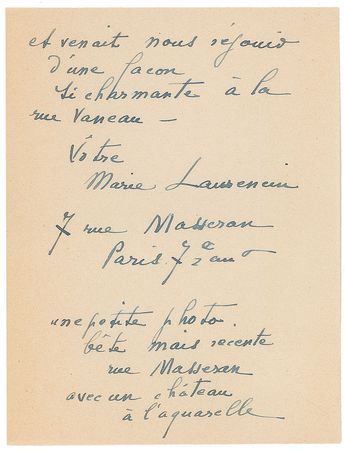 et venait nous réjouir
d'une façon
si charmante à la
rue Vaneau —
Vôtre
Marie Laurencin
7 rue Masseran
Paris 7
une petite photo.
bête mais recente
rue Masseran
avec un château
à l'aquarelle